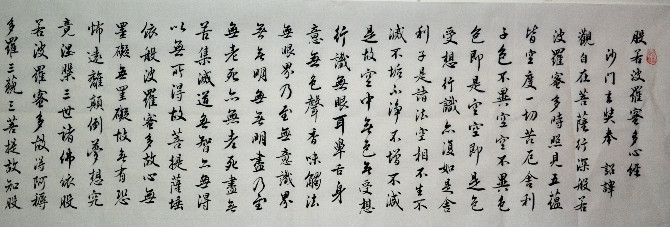 般若波羅蜜多心經
沙門玄奘奉 詔譯
觀自在菩薩行深般若
波羅蜜多時照見五蘊
皆空度一切苦厄舍利
子色不異空空不異色
色即是空空即是色
受想行識亦復如是舍
利子是諸法空相不生不
滅不垢不淨不增不減
是故空中無色無受想
行識無眼耳鼻舌身
意無色聲香味觸法
無眼界乃至無意識界
無無明無無明盡乃至
無老死亦無老死盡無
苦集滅道無智亦無得
以無所得故菩提薩埵
依般波羅蜜多故心無
罣礙無罣礙故無有恐
怖遠離顛倒夢想究
竟涅槃三世諸佛依般
若波羅蜜多故得阿耨
多羅三藐三菩提故知般